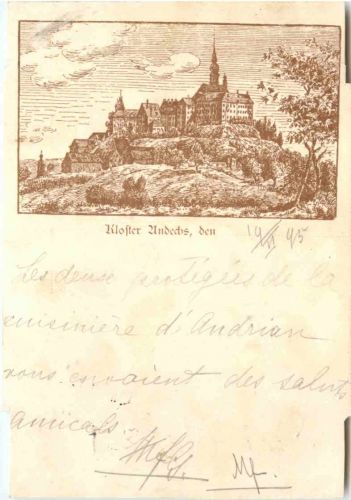 Kloster Andechs, den 19/XI 95
Les deux protégées de la
cuisinière d'Andrian
vous envoient des saluts
amicals.